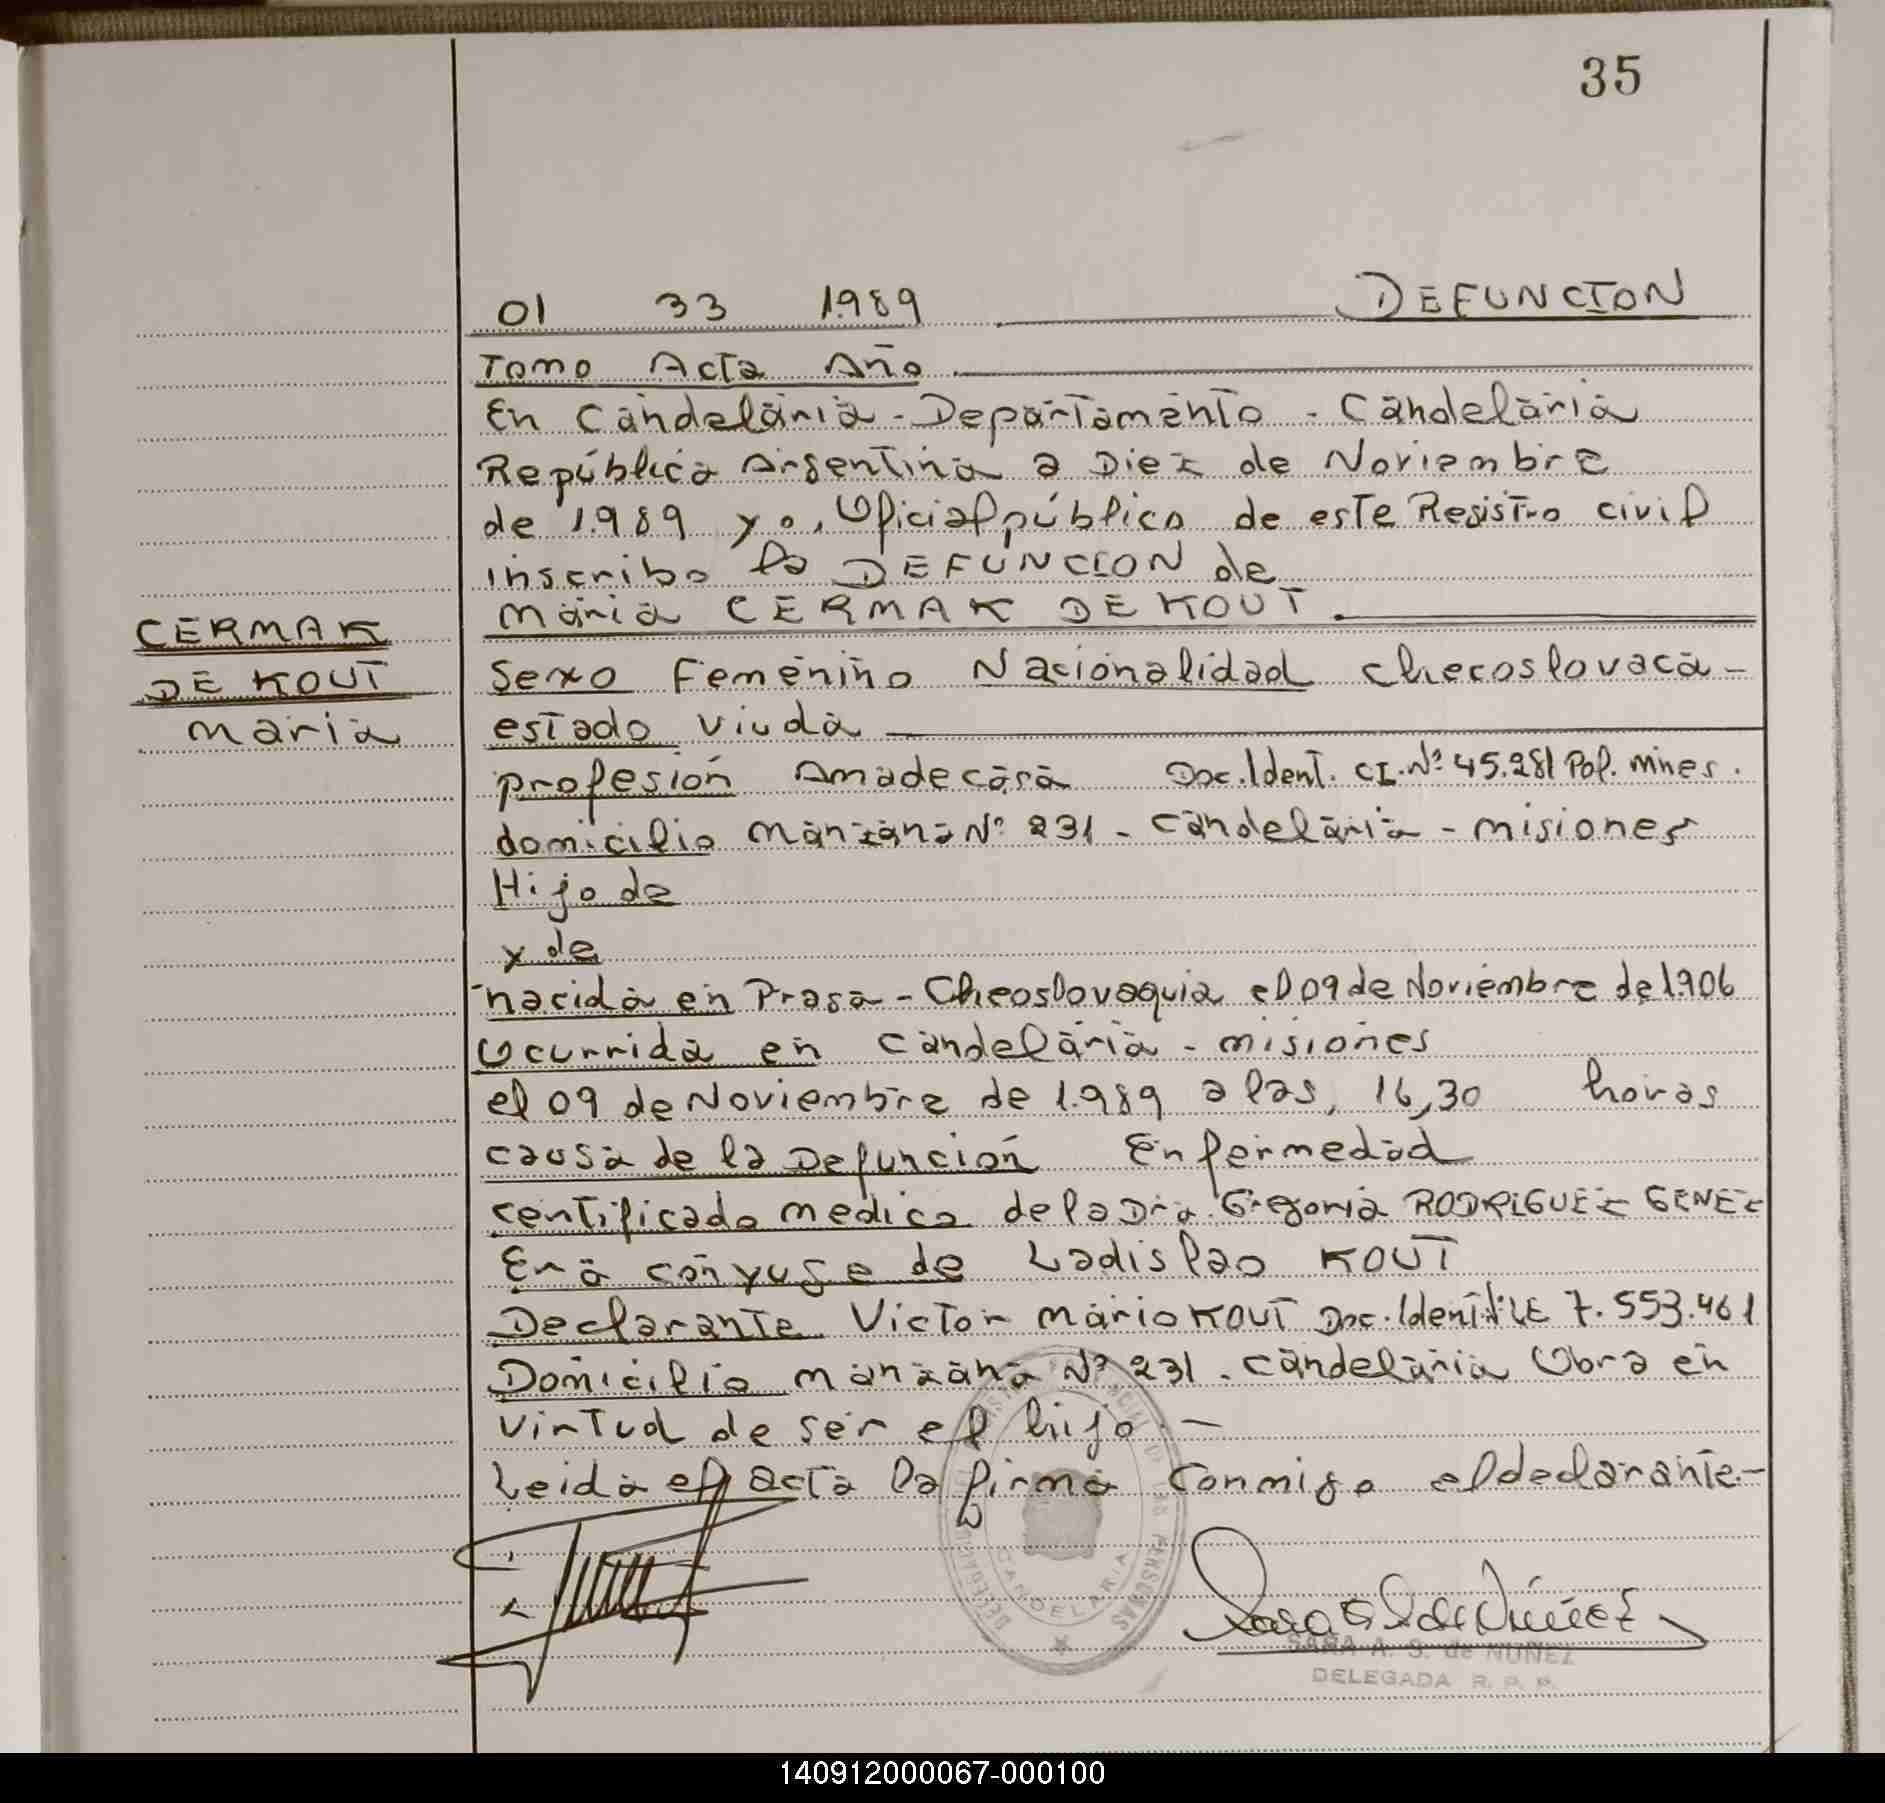 35
01 33 1.989 DEFUNCION
Tomo Acta Año
En Candelaria - Departamento - Candelaria
República Argentina a Diez de Noviembre
de 1.989 yo, Oficial público de este Registro civil
inscribo la DEFUNCION de
Maria CERMAK DE KOUT.
CERMAK
DE KOUT
Maria
Sexo Femenino Nacionalidad checoslovaca -
estado viuda
profesión Amadecasa Doc. Ident. CI. Nº 45.281 Pol. Mnes.
domicilio Manzana Nº 231 - Candelaria - Misiones
Hijo de
y de
nacida en Praga - Cheoslovaquia el 09 de Noviembre de 1.906
Ocurrida en Candelaria - Misiones
el 09 de Noviembre de 1.989 a las, 16,30 horas
causa de la Defunción Enfermedad
Certificado medico de la Dra. Gregoria RODRIGUEZ GENEZ
Era conyuge de Ladislao KOUT
Declarante Victor Mario KOUT Doc. Ident. LE 7.553.461
Domicilio Manzana Nº 231 - Candelaria Obra en
virtud de ser el hijo. -
Leida el acta la firma conmigo el declarante. -
CANDELARIA
SARA A. S. de NUÑEZ
DELEGADA R. P. P.
140912000067-000100